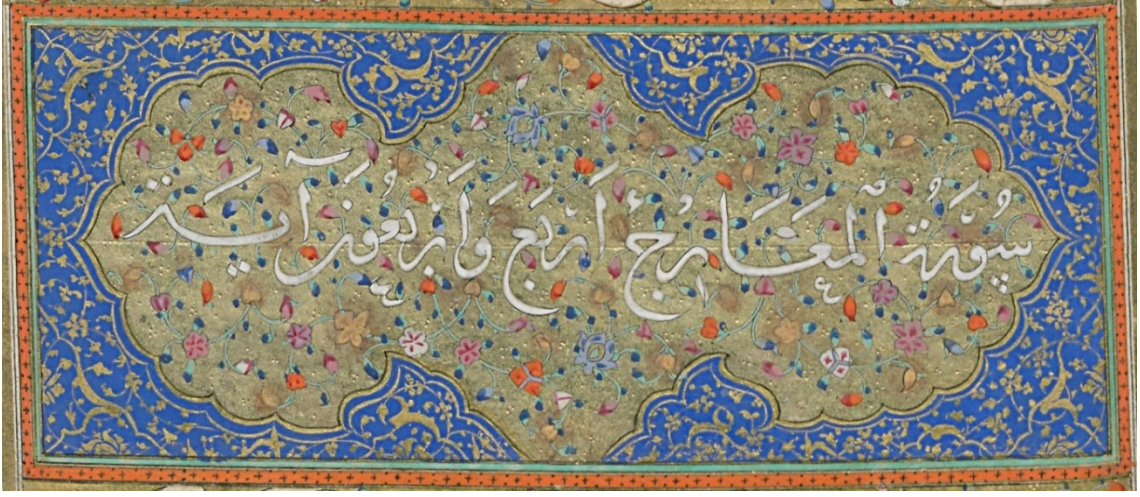 سُورَةُ الْمَعَارِجِ أَرْبَع وَأَرْبَعُونَ آيَة